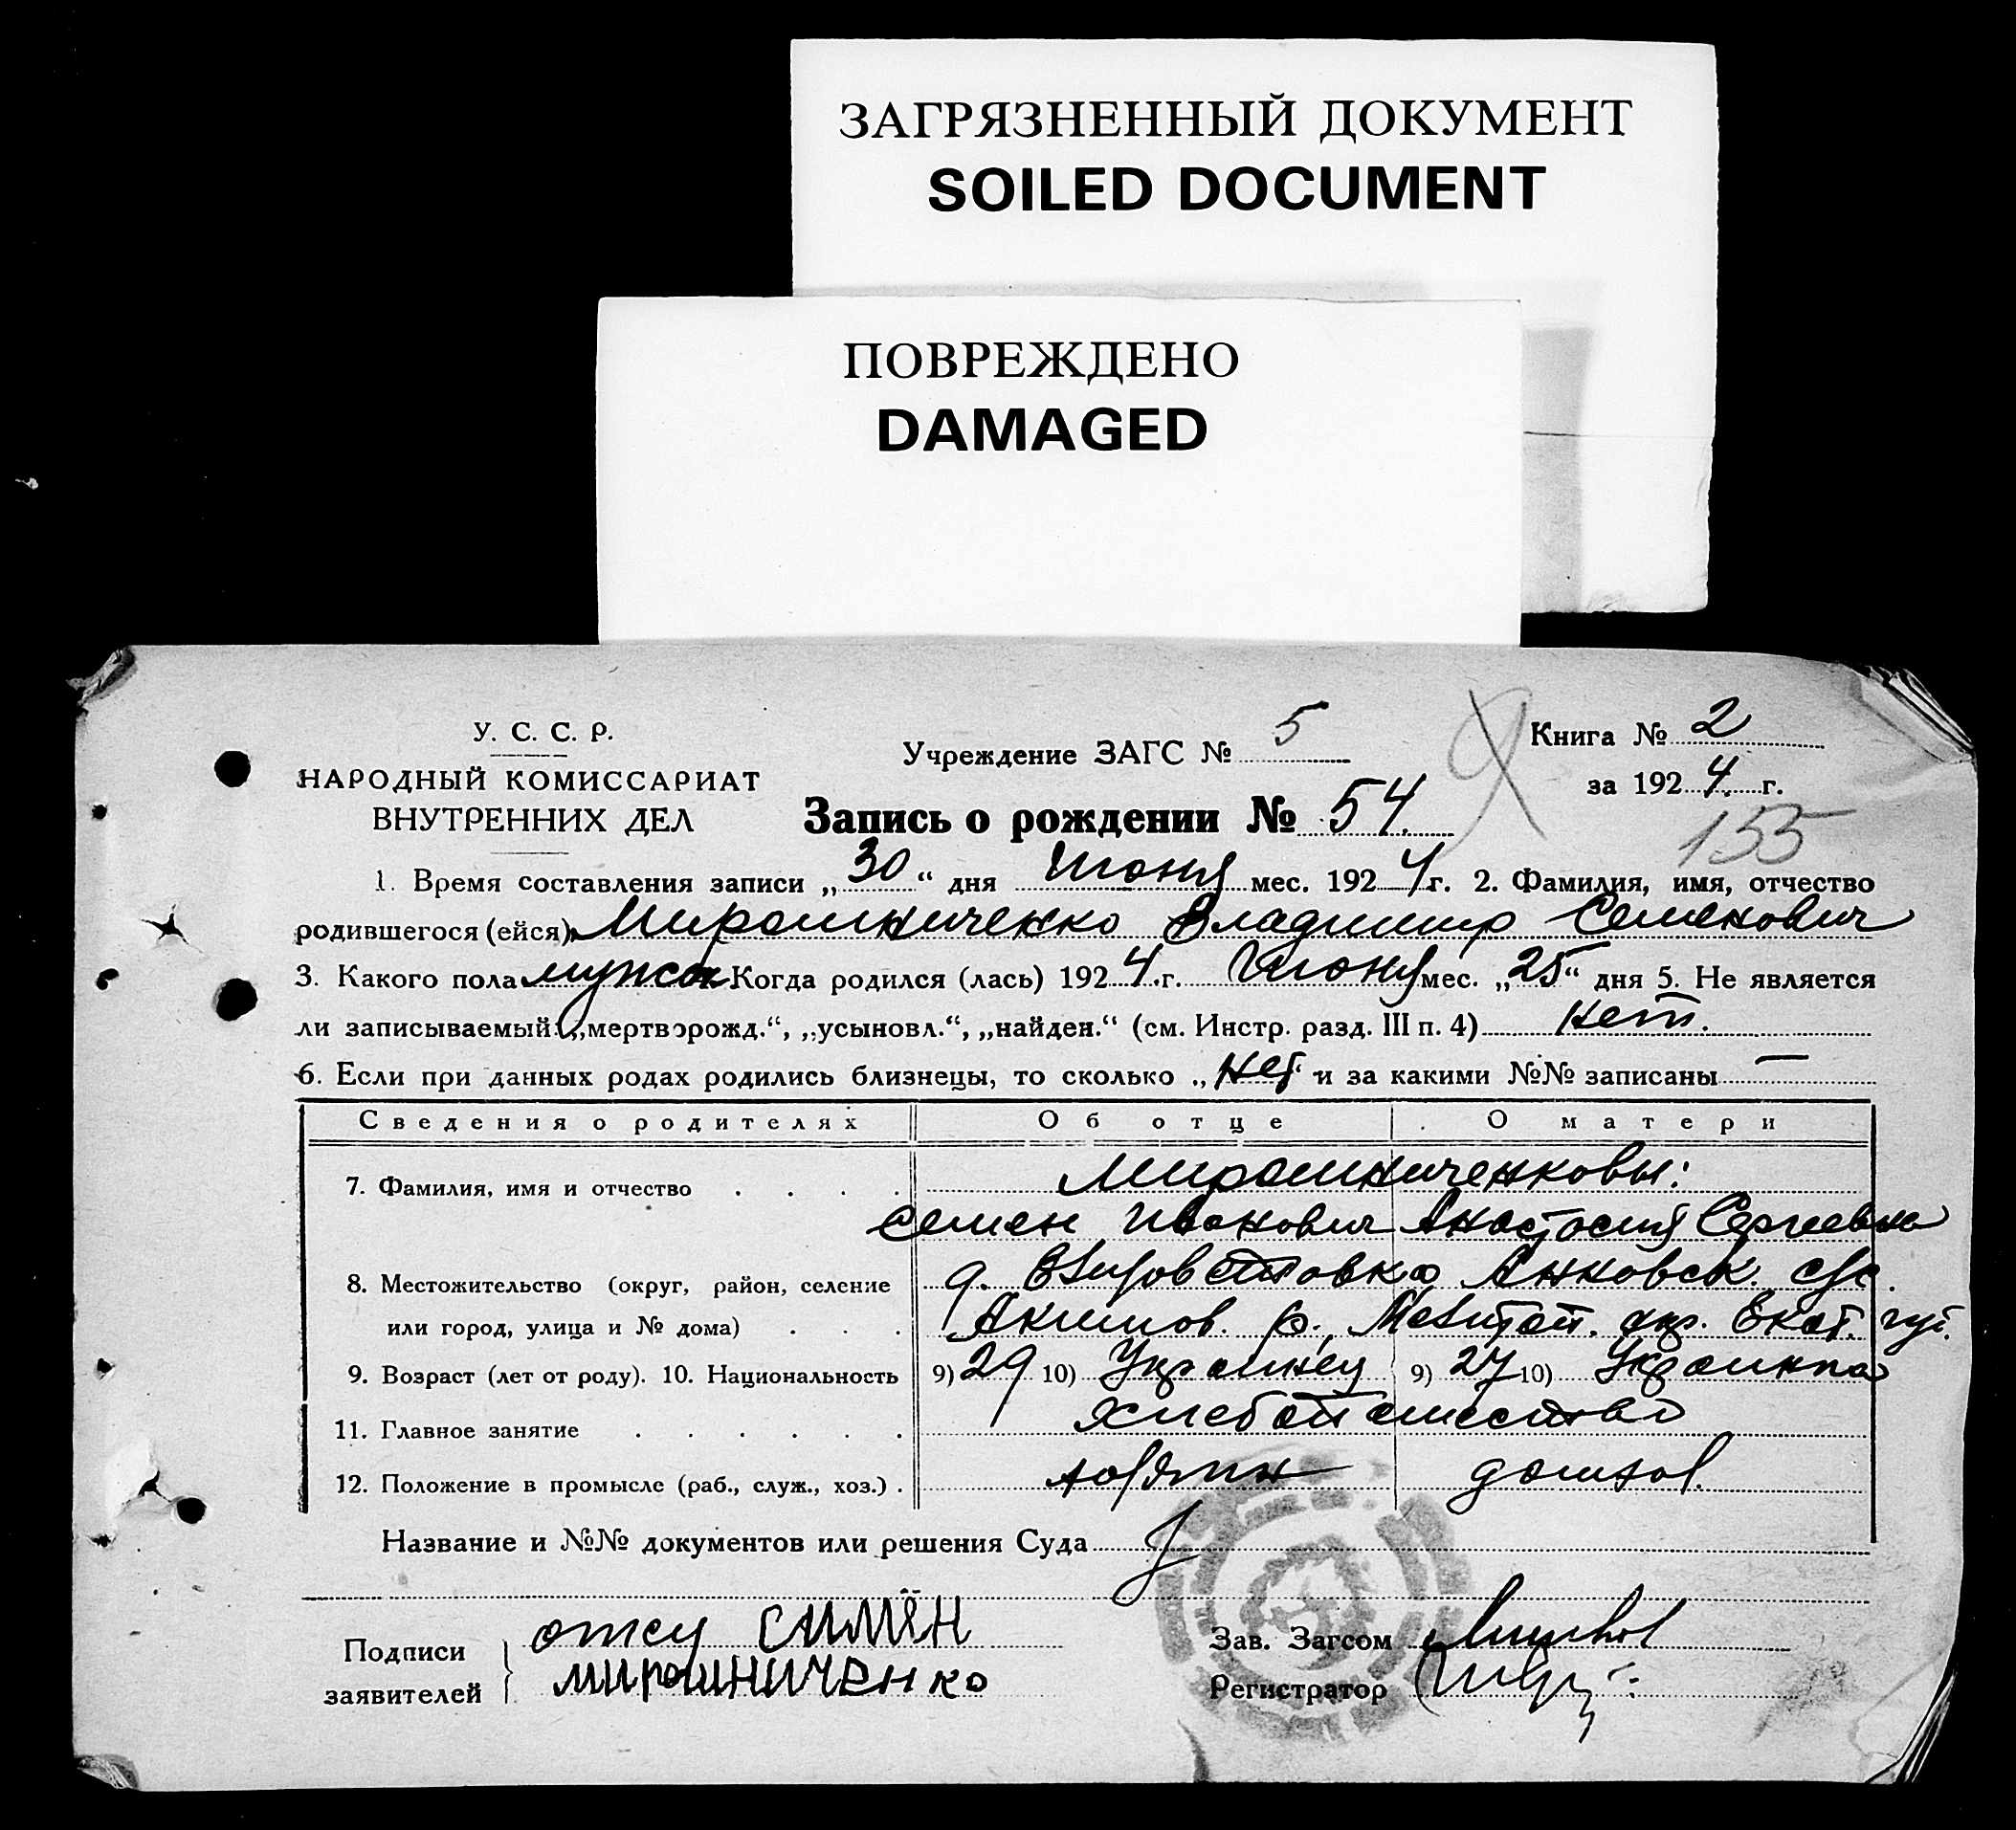 ЗАГРЯЗНЕННЫЙ ДОКУМЕНТ
SOILED DOCUMENT
ПОВРЕЖДЕНО
DAMAGED
У. С. С. Р.
НАРОДНЫЙ КОМИССАРИАТ
ВНУТРЕННИХ ДЕЛ
Учреждение ЗАГС № 5
Книга № 2
за 1924 г.
Запись о рождении № 54
155
1. Время составления записи „30“ дня Июня мес. 1924 г. 2. Фамилия, имя, отчество
родившегося (ейся) Мирошниченко Владимир Семенович
3. Какого пола мужск Когда родился (лась) 1924 г. Июня мес. „25“ дня 5. Не является
ли записываемый: „мертворожд.“, „усыновл.“, „найден.“ (см. Инстр. разд. III п. 4) нет.
6. Если при данных родах родились близнецы, то сколько „нет“ и за какими №№ записаны —
Сведения о родителях Об отце О матери
7. Фамилия, имя и отчество Мирошниченковы:
Семен Иванович Анастасия Сергеевна
8. Местожительство (округ, район, селение д.
или город, улица и № дома) Акимов. р., Мелитоп. окр. Екат. губ.
9. Возраст (лет от роду). 10. Национальность 9) 29 10) Украинец 9) 27 10) Украинка
11. Главное занятие Хлебопашество
12. Положение в промысле (раб., служ., хоз.) хозяин домхоз.
Название и №№ документов или решения Суда
Подписи заявителей отец Симён
Мирошниченко
Зав. Загсом
Регистратор